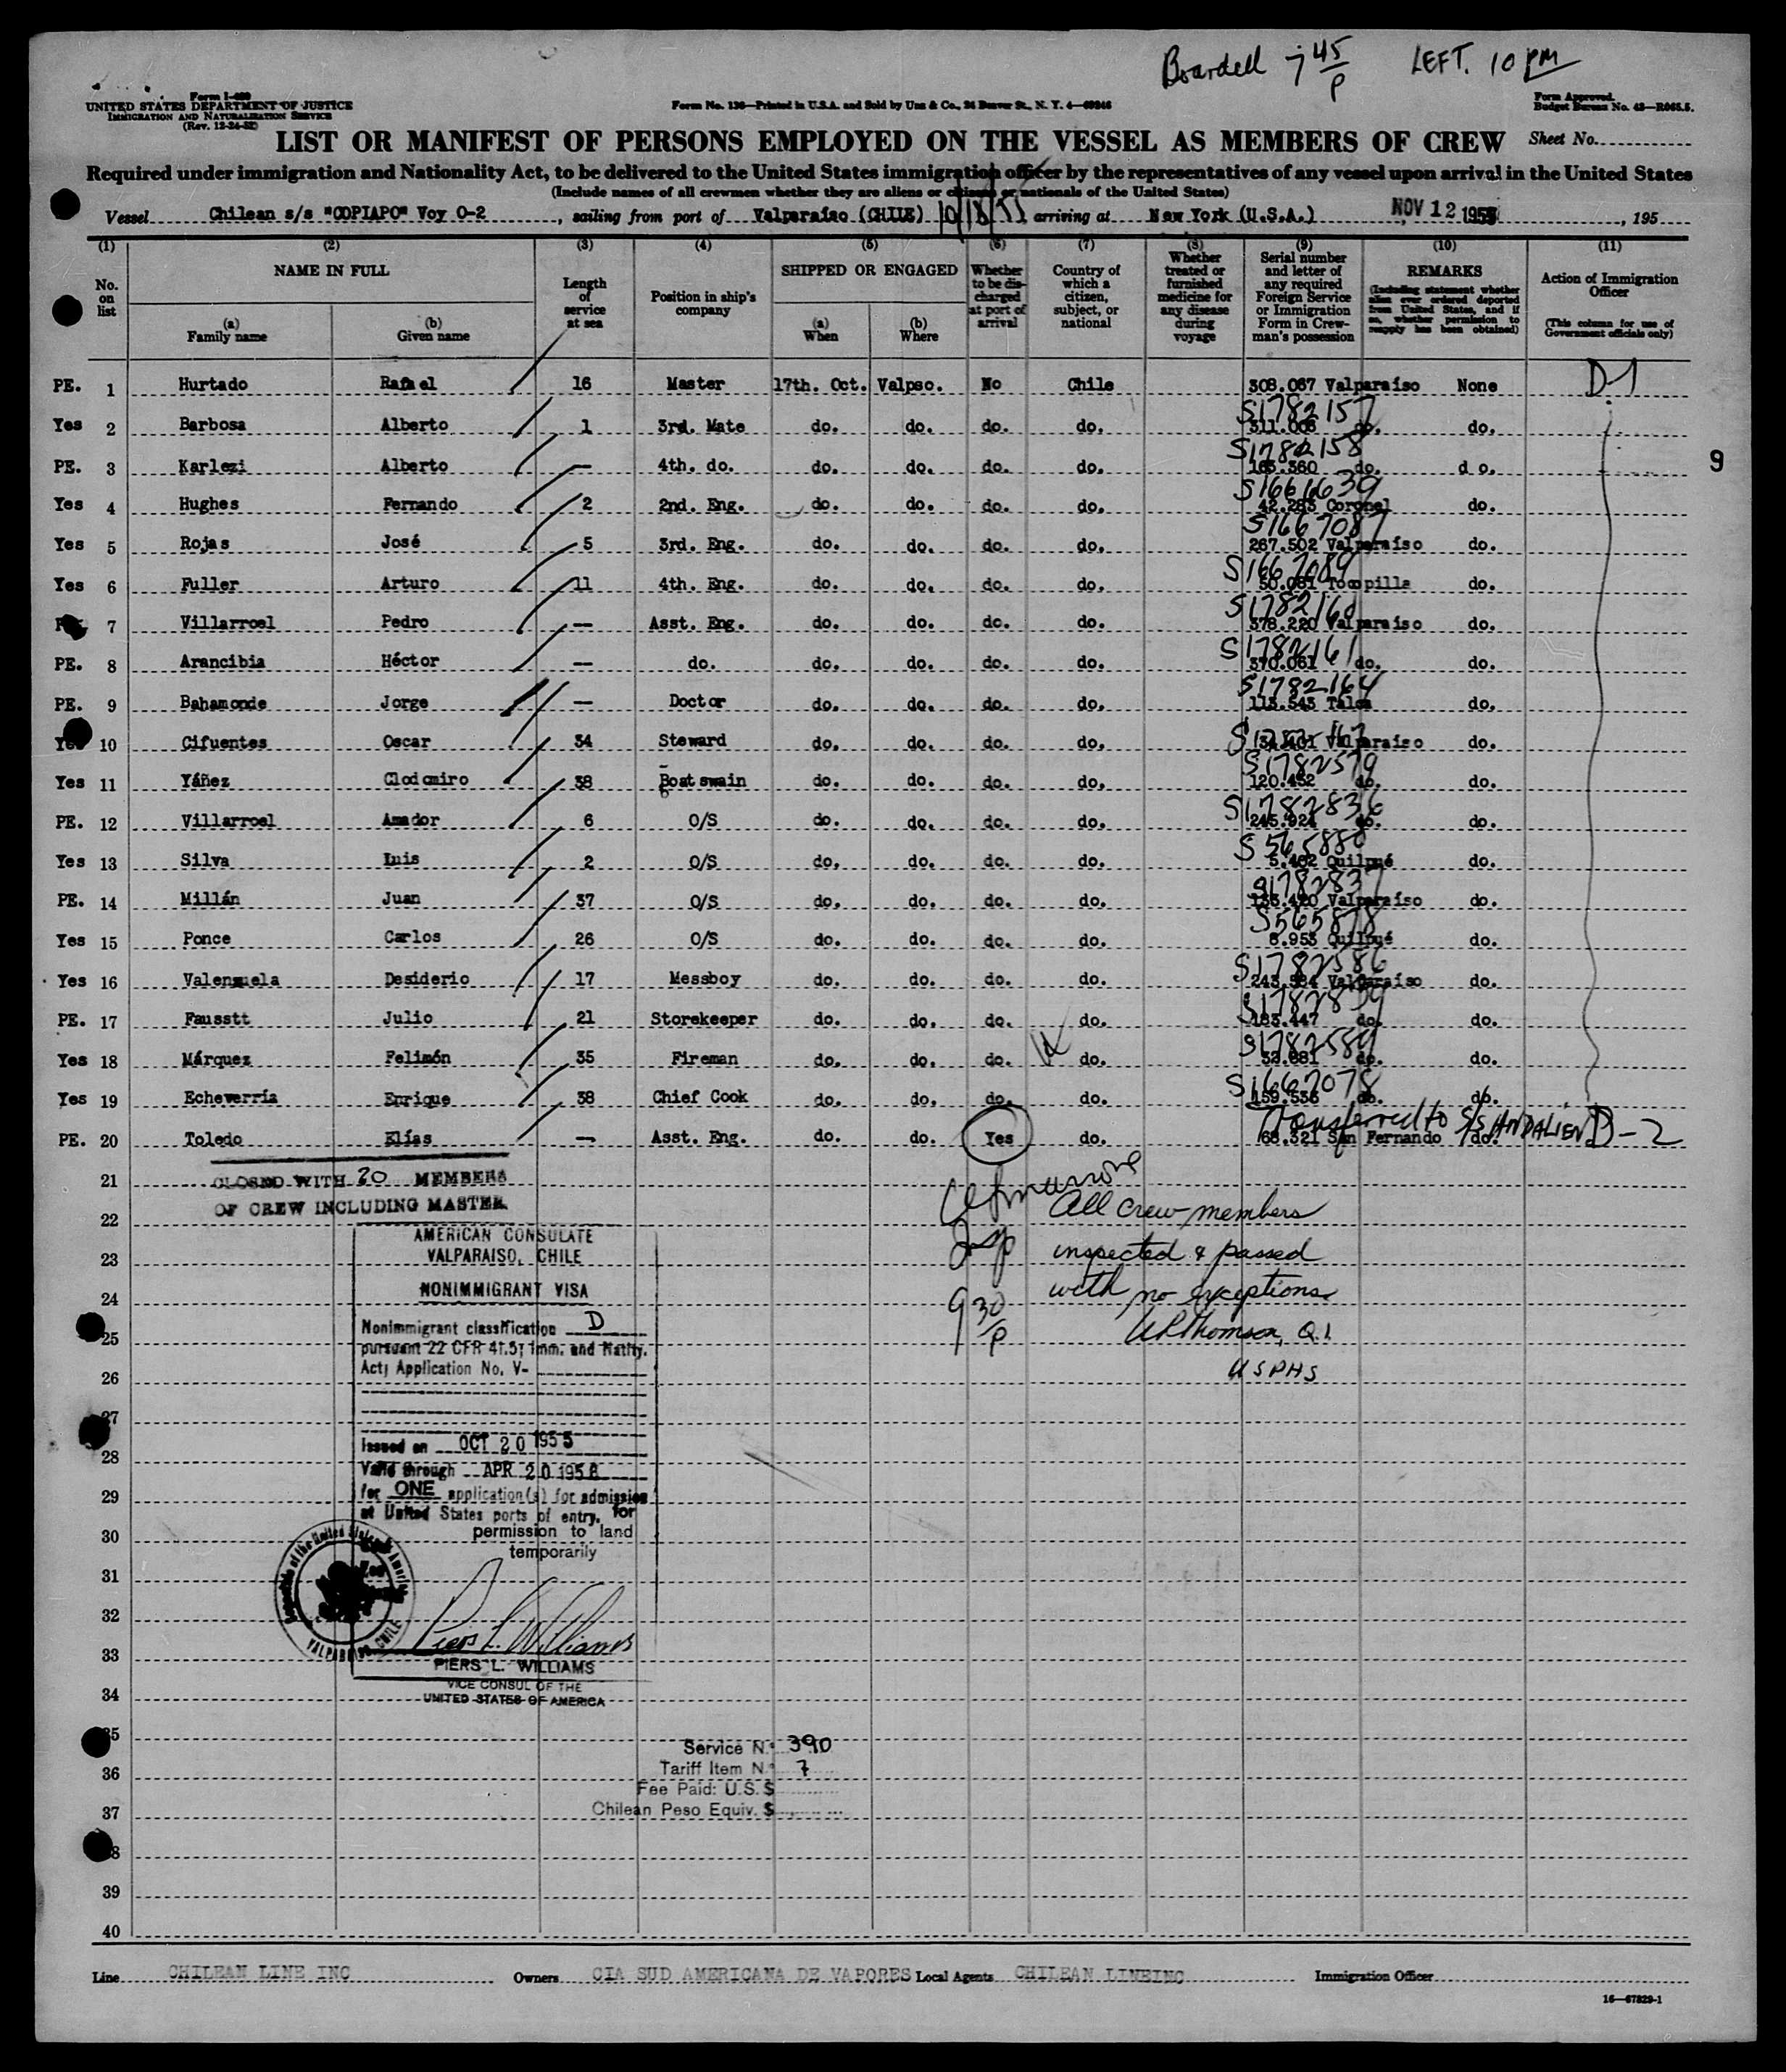 Boarded 7 45/P LEFT. 10 PM
Form I-480
UNITED STATES DEPARTMENT OF JUSTICE
IMMIGRATION AND NATURALIZATION SERVICE
(Rev. 12-24-52)
Form No. 136—Printed in U.S.A. and Sold by Unz & Co., 24 Beaver St., N. Y. 4—60246
Form Approved.
Budget Bureau No. 43—R065.5.
LIST OR MANIFEST OF PERSONS EMPLOYED ON THE VESSEL AS MEMBERS OF CREW
Sheet No.
Required under immigration and Nationality Act, to be delivered to the United States immigration officer by the representatives of any vessel upon arrival in the United States
(Include names of all crewmen whether they are aliens or citizens or nationals of the United States)
Vessel Chilean s/s "COPIAPO" Voy O-2, sailing from port of Valparaíso (CHILE) 10/18/55, arriving at New York (U.S.A.) NOV 12 1955, 195
(1) (2) (3) (4) (5) (6) (7) (8) (9) (10) (11)
No. on list
NAME IN FULL
(a) Family name
(b) Given name
Length of service at sea
Position in ship's company
SHIPPED OR ENGAGED
(a) When
(b) Where
Whether to be discharged at port of arrival
Country of which a citizen, subject, or national
Whether treated or furnished medicine for any disease during voyage
Serial number and letter of any required Foreign Service or Immigration Form in Crewman's possession
REMARKS
(Including statement whether alien ever ordered deported from United States, and if so, whether permission to reapply has been obtained)
Action of Immigration Officer
(This column for use of Government officials only)
PE. 1 Hurtado Rafael 16 Master 17th. Oct. Valpso. No Chile 308.067 Valparaíso None D-1
Yes 2 Barbosa Alberto 1 3rd. Mate do. do. do. do. S1782157 311.008 do. do.
PE. 3 Karlezi Alberto — 4th. do. do. do. do. do. S1782158 165.360 do. do.
9
Yes 4 Hughes Fernando 2 2nd. Eng. do. do. do. do. S1661639 42.283 Coronel do.
Yes 5 Rojas José 5 3rd. Eng. do. do. do. do. S1667087 267.502 Valparaíso do.
Yes 6 Fuller Arturo 11 4th. Eng. do. do. do. do. S1667089 50.061 Tocopilla do.
7 Villarroel Pedro — Asst. Eng. do. do. do. do. S1782160 378.220 Valparaíso do.
PE. 8 Arancibia Héctor — do. do. do. do. do. S1782161 370.061 do. do.
PE. 9 Bahamonde Jorge — Doctor do. do. do. do. S1782164 113.543 Talca do.
Yes 10 Cifuentes Oscar 34 Steward do. do. do. do. Valparaíso do.
Yes 11 Yáñez Clodomiro 38 Boatswain do. do. do. do. S1782579 120.452 do. do.
PE. 12 Villarroel Amador 6 O/S do. do. do. do. S1782836 245.924 do. do.
Yes 13 Silva Luis 2 O/S do. do. do. do. S565880 5.402 Quilpué do.
PE. 14 Millán Juan 37 O/S do. do. do. do. S1782837 Valparaíso do.
Yes 15 Ponce Carlos 26 O/S do. do. do. do. S565878 8.953 Quilpué do.
Yes 16 Valenzuela Desiderio 17 Messboy do. do. do. do. S1782586 243.584 Valparaíso do.
PE. 17 Fausstt Julio 21 Storekeeper do. do. do. do. S1782839 183.447 do. do.
Yes 18 Márquez Felimón 35 Fireman do. do. do. do. S1782584 do. do.
Yes 19 Echeverría Enrique 38 Chief Cook do. do. do. do. S1667078 159.536 do. do.
Transferred to S/S ANDALIEN
PE. 20 Toledo Elías — Asst. Eng. do. do. Yes do. 68.321 San Fernando do. D-2
21
CLOSED WITH 20 MEMBERS
OF CREW INCLUDING MASTER
22
All crew members
inspected & passed
with no exceptions
Thomson, Q.I.
USPHS
Insp
9 30/P
AMERICAN CONSULATE
VALPARAISO, CHILE
23
NONIMMIGRANT VISA
24
Nonimmigrant classification D
25
pursuant 22 CFR 41.5; Imm. and Natlty.
Act; Application No. V-
26
27
Issued on OCT 20 1955
28
Valid through APR 20 1956
for ONE application(s) for admission
29
at United States ports of entry, for
30
permission to land
temporarily
31
32
VALPARAISO, CHILE
Piers L. Williams
33
PIERS L. WILLIAMS
VICE CONSUL OF THE
34
UNITED STATES OF AMERICA
35
Service N.º 390
36
Tariff Item N.º 7
Fee Paid: U.S. $
37
Chilean Peso Equiv. $
38
39
40
Line CHILEAN LINE INC Owners CIA SUD AMERICANA DE VAPORES Local Agents CHILEAN LINEINC Immigration Officer
16—67829-1